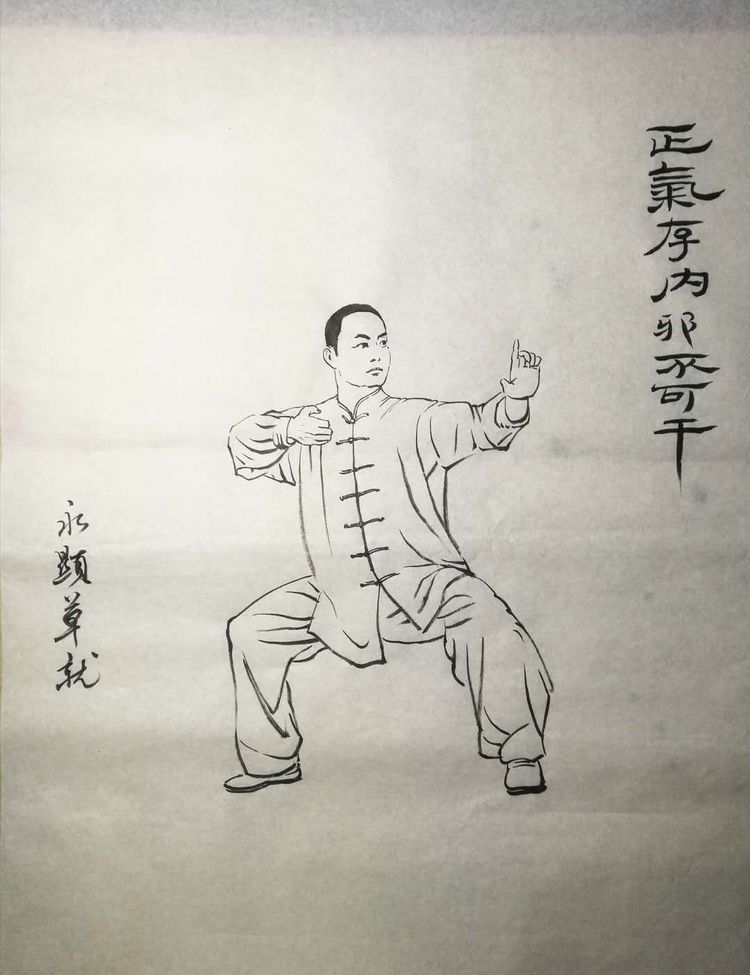 正氣存内邪不可干
永顯草就